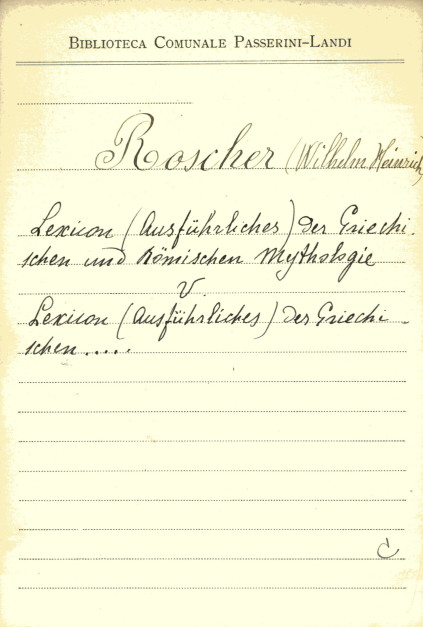 BIBLIOTECA COMUNALE PASSERINI-LANDI
Roscher (Wilhelm Heinrich)
Lexicon (Ausführliches) der Griechi-
schen und Römischen Mythologie
V.
Lexicon (Ausführliches) der Griechi-
schen.....
C